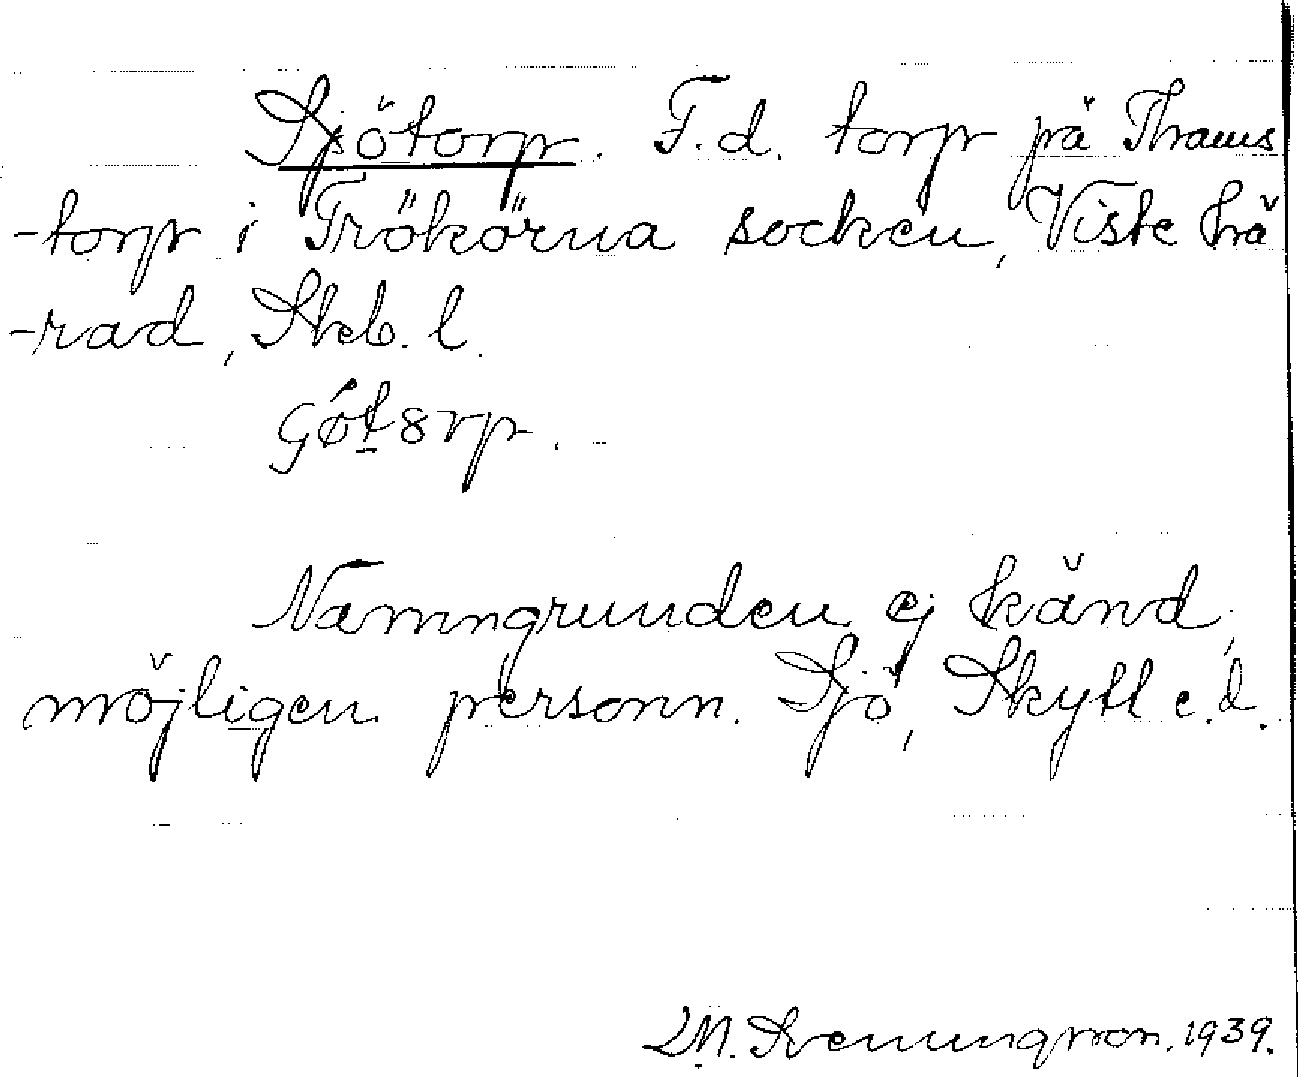 Sjötorp. F.d. torp på Thams
-torp i Trökörna socken, Viste hä
-rad, Skb. l.
Namngrunden ej känd,
möjligen personn. Sjö, Skytt e.d.
D.N. Svenungsson. 1939.